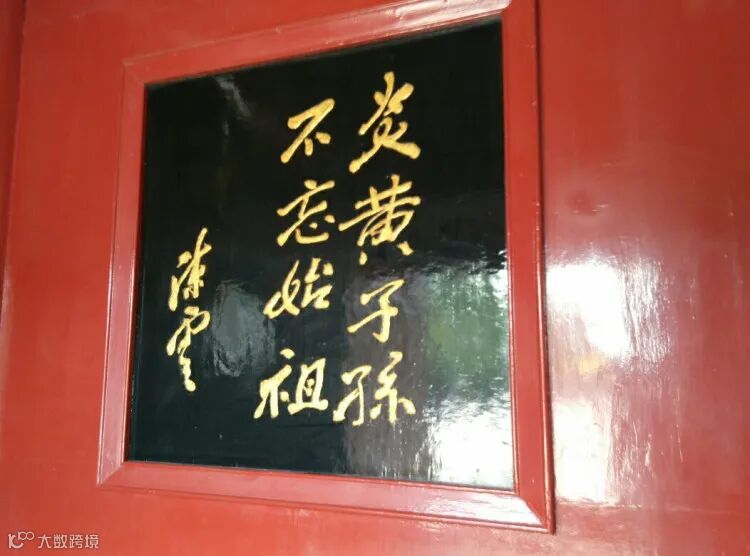 炎黄子孫
不忘始祖
陈雲
大数跨境